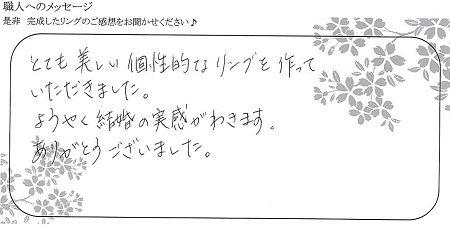 職人へのメッセージ
是非 完成したリングのご感想をお聞かせください♪
とても美しい個性的なリングを作って
いただきました。
ようやく結婚の実感がわきます。
ありがとうございました。